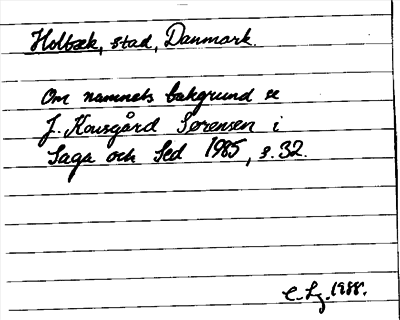 Holbæk, stad, Danmark.
Om namnets bakgrund se
J. Kousgård Sørensen i
Saga och Sed 1985, s. 32.
C. Lg. 1988.